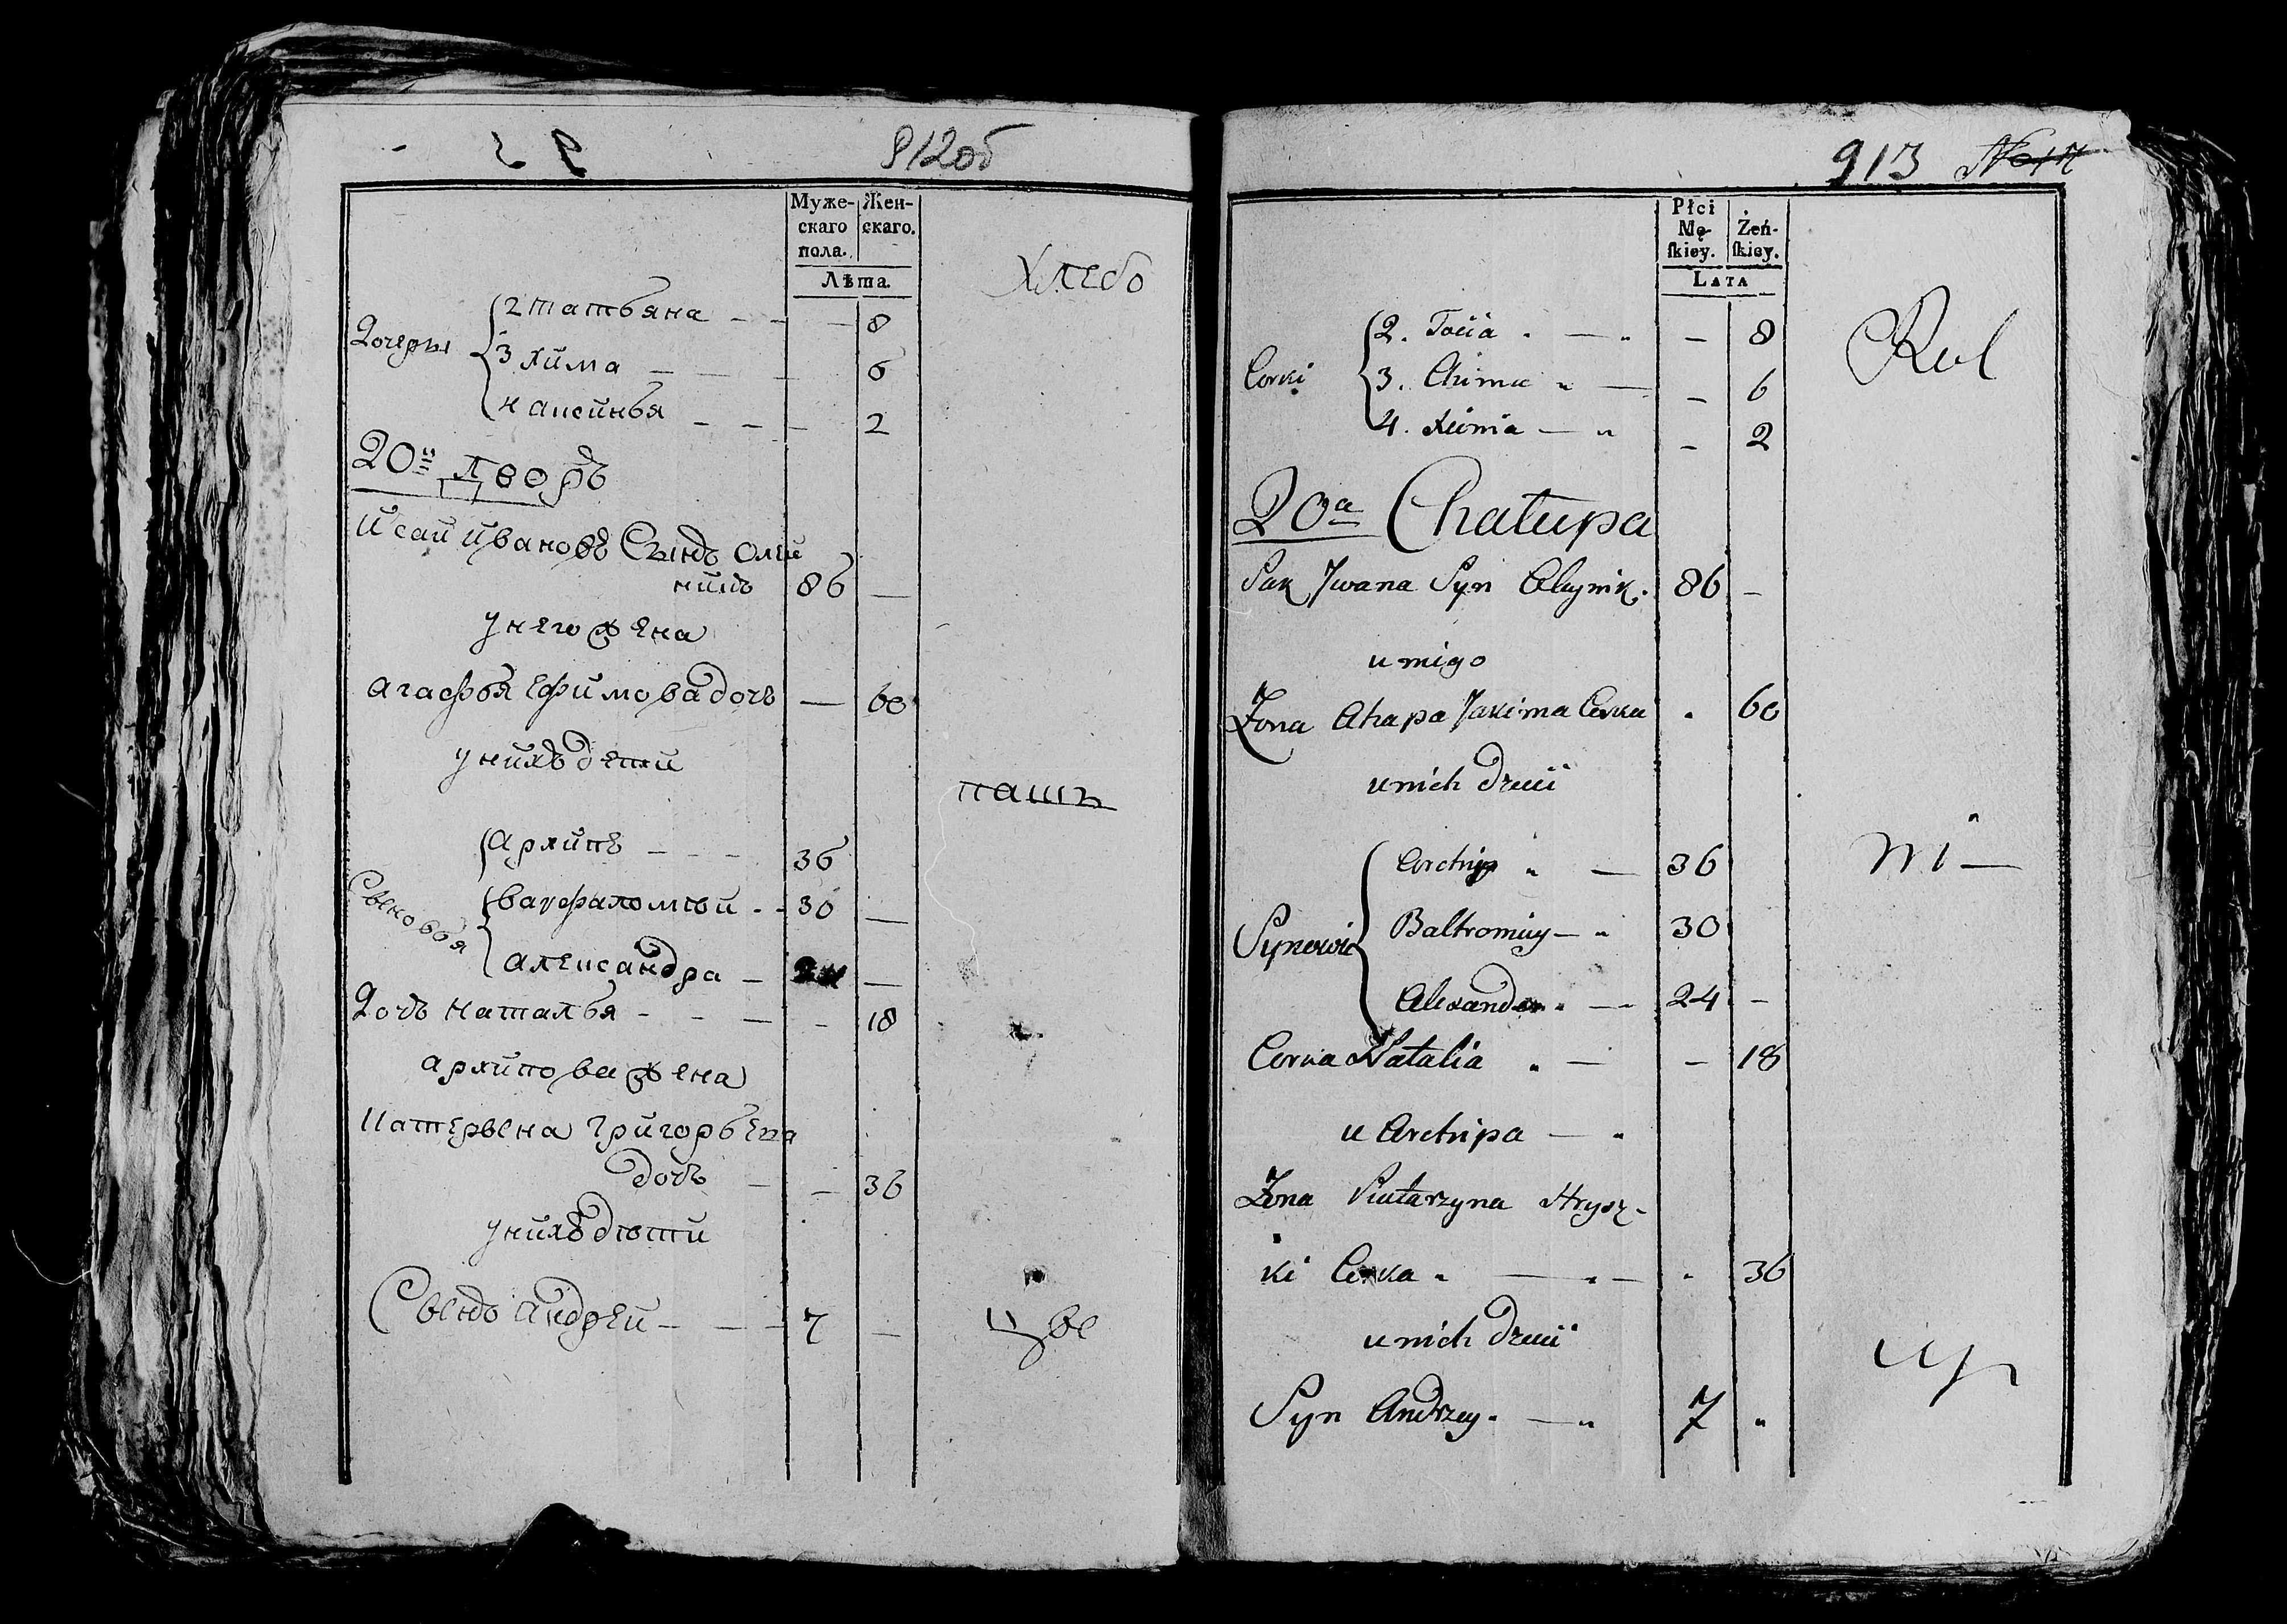 912об
Муже-
скаго
пола.
Жен-
скаго.
Лѣта.
Хлебо
Дочеры
2 татьяна — — — 8
3 хима — — — 6
4 аксинья — — — 2
20й дворъ
Исаи Ивановъ Сынъ Олей
никъ 86 —
у него жена
агафья ефимова дочь — 60
у нихъ дети
пашъ
Сыновья
архипъ — — — 36
варфаломѣй - - 30 —
александра — 24 —
Дочь наталья - - — - 18
архипова жена
катерына григорьева
дочь — — 36
у нихъ дѣти
Сынъ андрей — — — 7 —
цве
913
Płci
Mę-
skiey.
Żeń-
skiey.
Lata
Rol
Corki
2. Tacia - — - — 8
3. Chima - — — 6
4. Xienia — - — 2
20a Chatupa
Isak Jwana Syn Oleynik. 86 —
u niego
Zona Ahapa Jakima Corka - 60
u nich dzieci
ni —
Synowie
Archip - — 36
Baltromiey — - 30
Alexander - — 24 —
Corka Natalia - — — 18
u Archipa — -
Zona Katarzyna Hrysz-
ki Corka - — - — - 36
u nich dzieci
cy
Syn Andrzey - — - 7 -